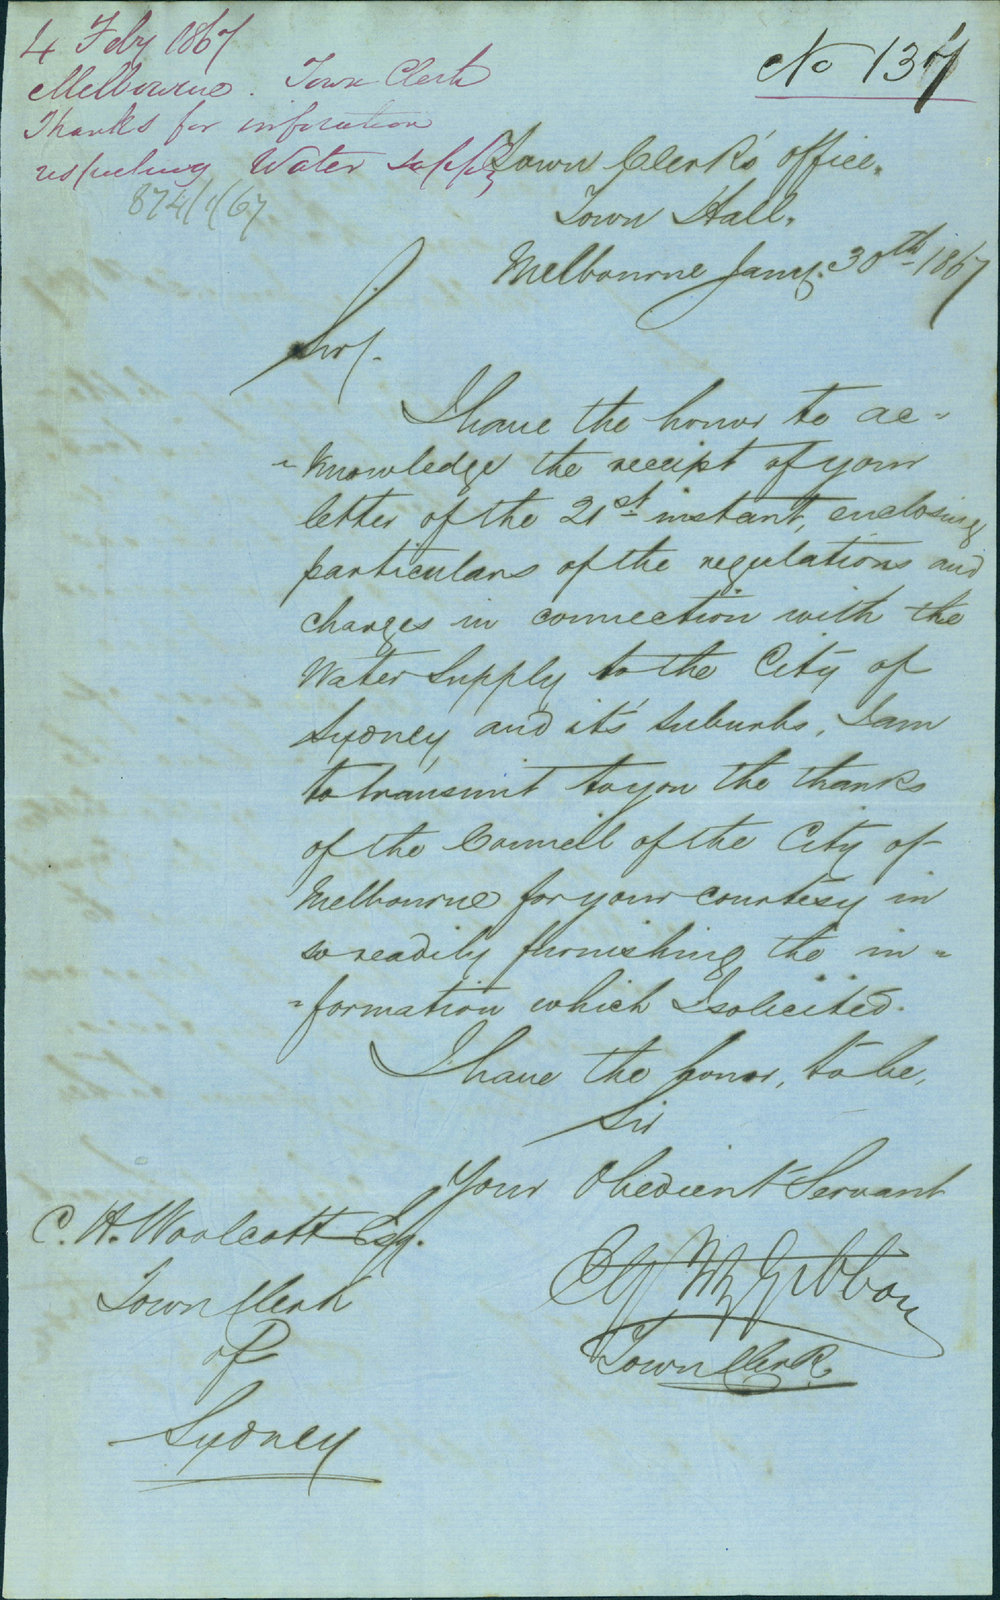 4 Feby 1867
Melbourne. Town Clerk
Thanks for information
respecting Water supply
874/1/67
No 137
Town Clerk's office.
Town Hall,
Melbourne Jany. 30th 1867
Sir/.
I have the honor to ac-
-knowledge the receipt of your
letter of the 21st instant, enclosing
particulars of the regulations and
charges in connection with the
Water Supply to the City of
Sydney and it's suburbs, I am
to transmit to you the thanks
of the Council of the City of
Melbourne for your courtesy in
so readily furnishing the in-
-formation which I solicited.
I have the honor, to be,
Sir
Your Obedient Servant
Fitz Gibbon
Town Clerk.
C. H. Woolcott Esq.
Town Clerk
of
Sydney